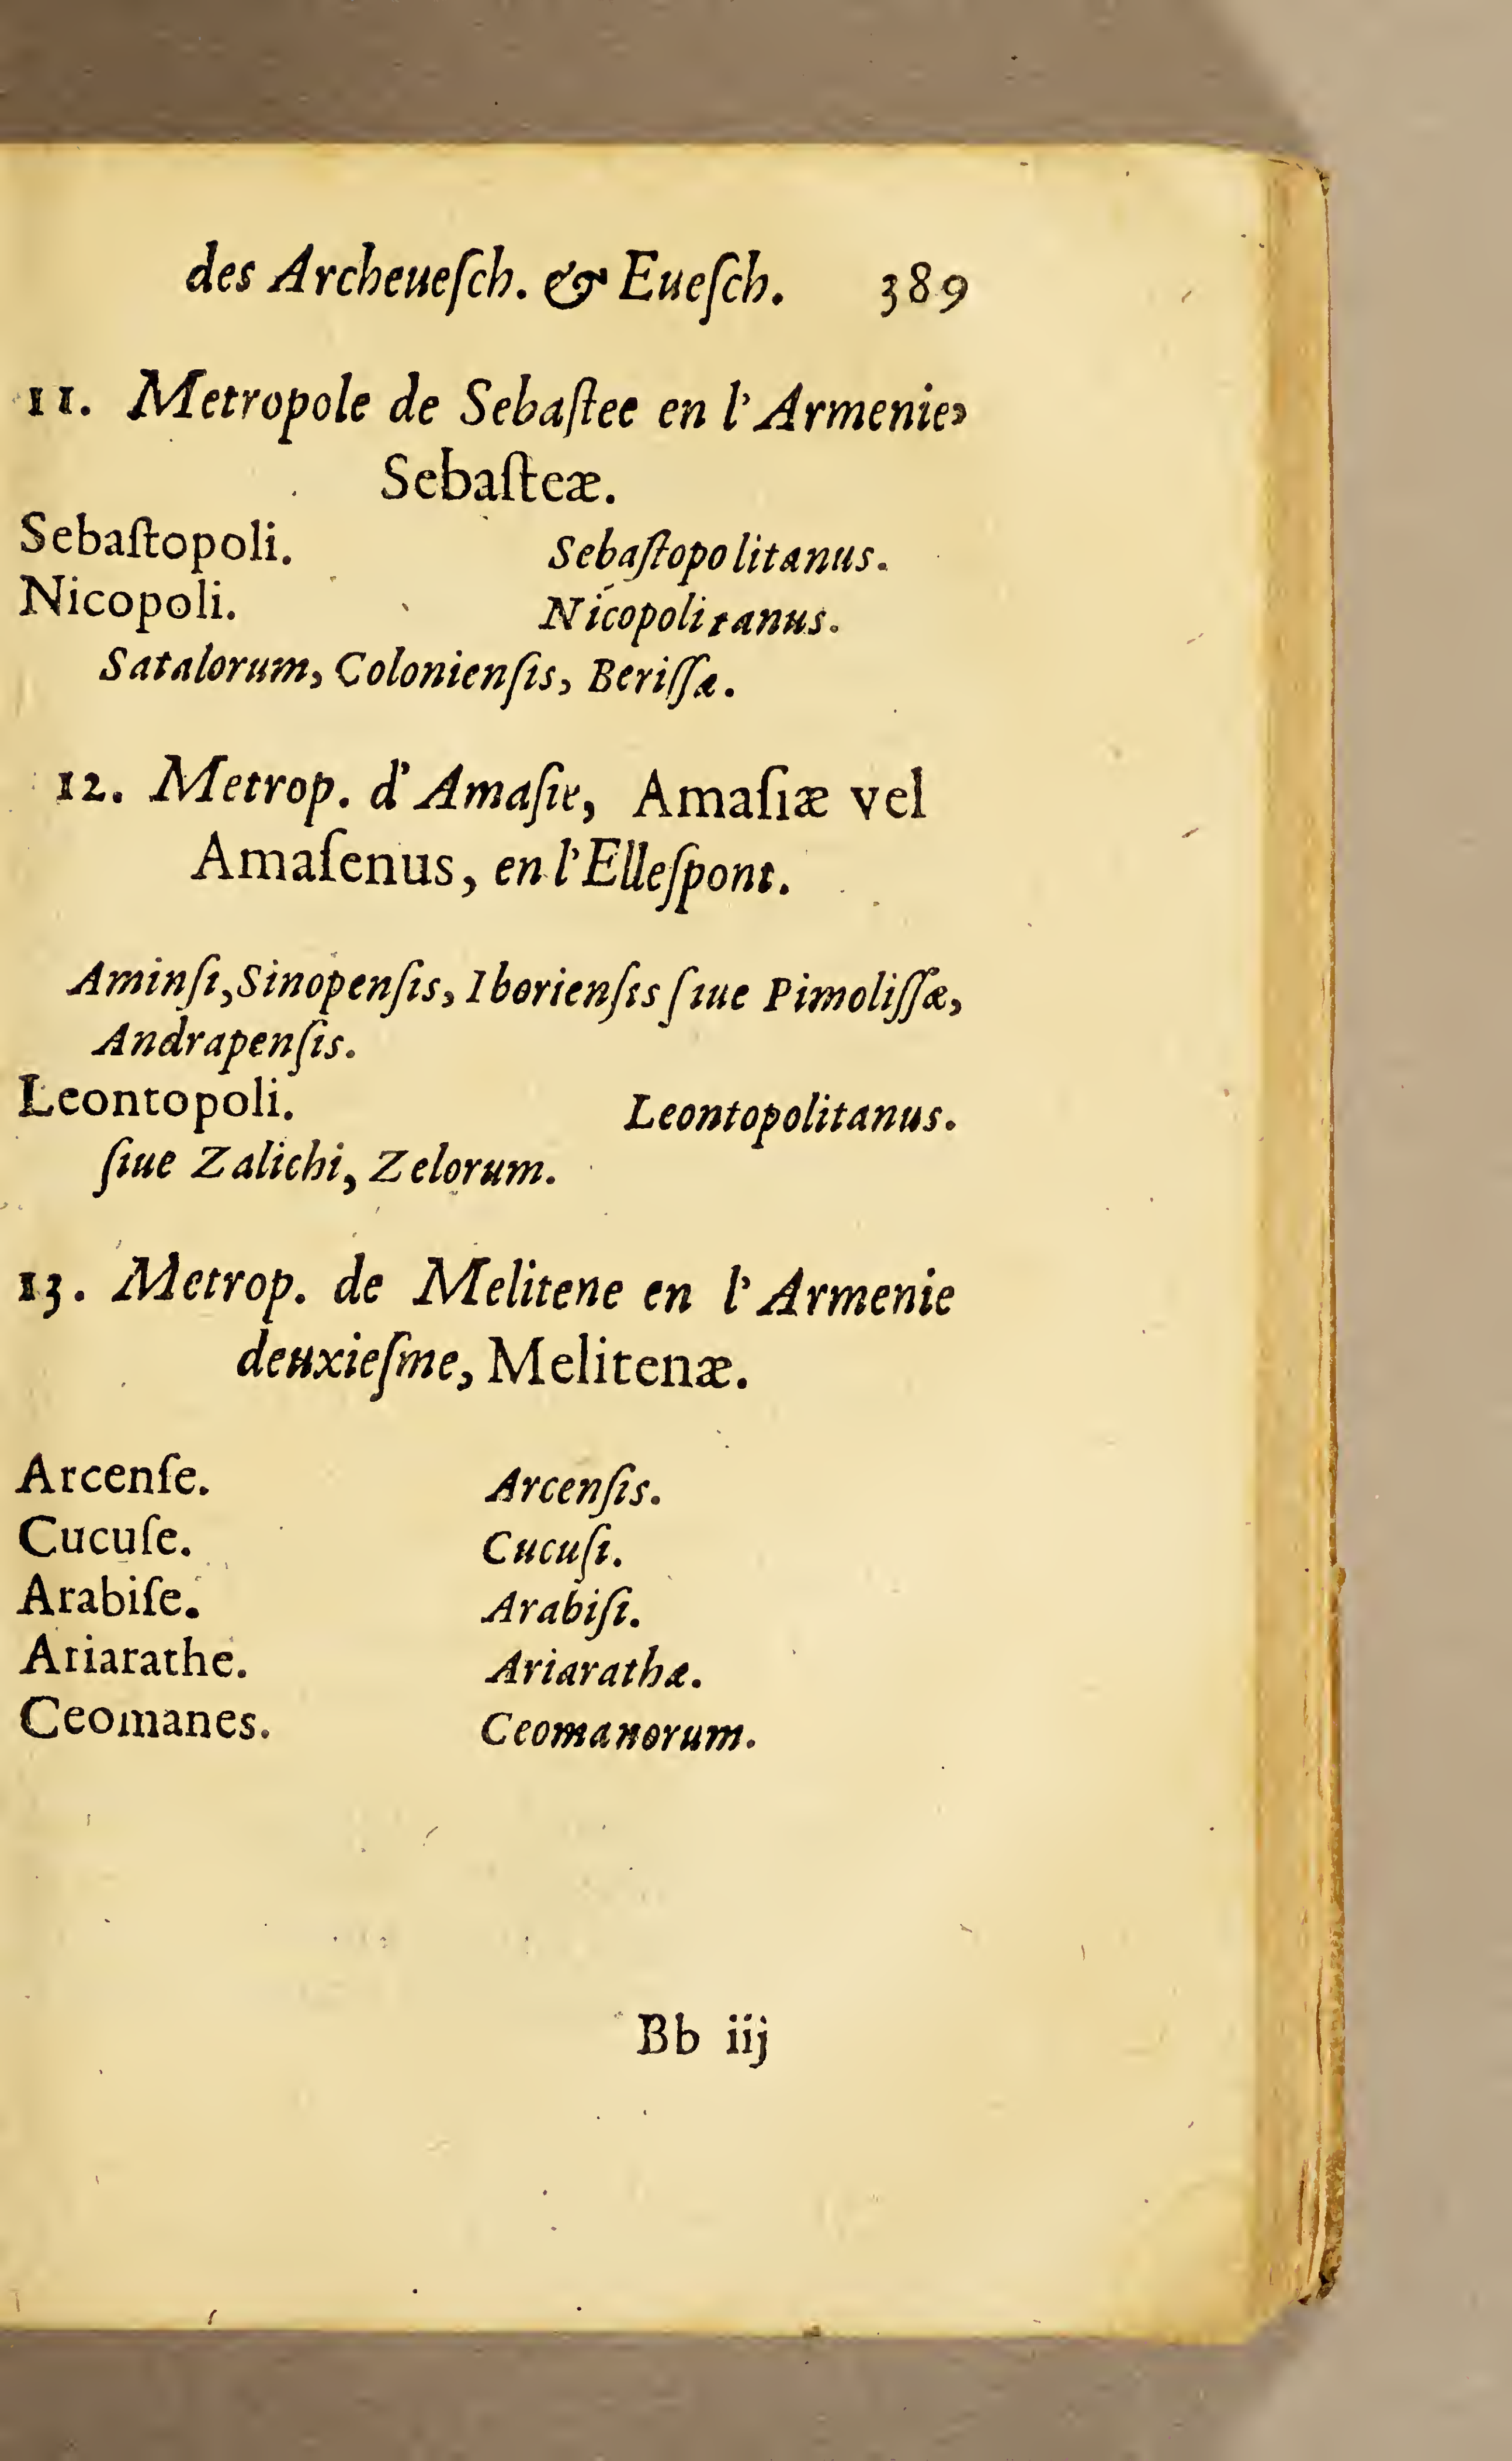 des Archeueſch. & Eueſch. 389
11. Metropole de Sebaſtee en l'Armenie,
Sebaſteæ.
Sebaſtopoli. Sebaſtopolitanus.
Nicopoli. Nicopolitanus.
Satalorum, Colonienſis, Beriſſæ.
12. Metrop. d'Amaſie, Amaſiæ vel
Amaſenus, en l'Elleſpont.
Aminſi, Sinopenſis, Iborienſis ſiue Pimoliſſæ,
Andrapenſis.
Leontopoli. Leontopolitanus.
ſiue Zalichi, Zelorum.
13. Metrop. de Melitene en l'Armenie
deuxieſme, Melitenæ.
Arcenſe. Arcenſis.
Cucuſe. Cucuſi.
Arabiſe. Arabiſi.
Ariarathe. Ariarathæ.
Ceomanes. Ceomanorum.
Bb iij